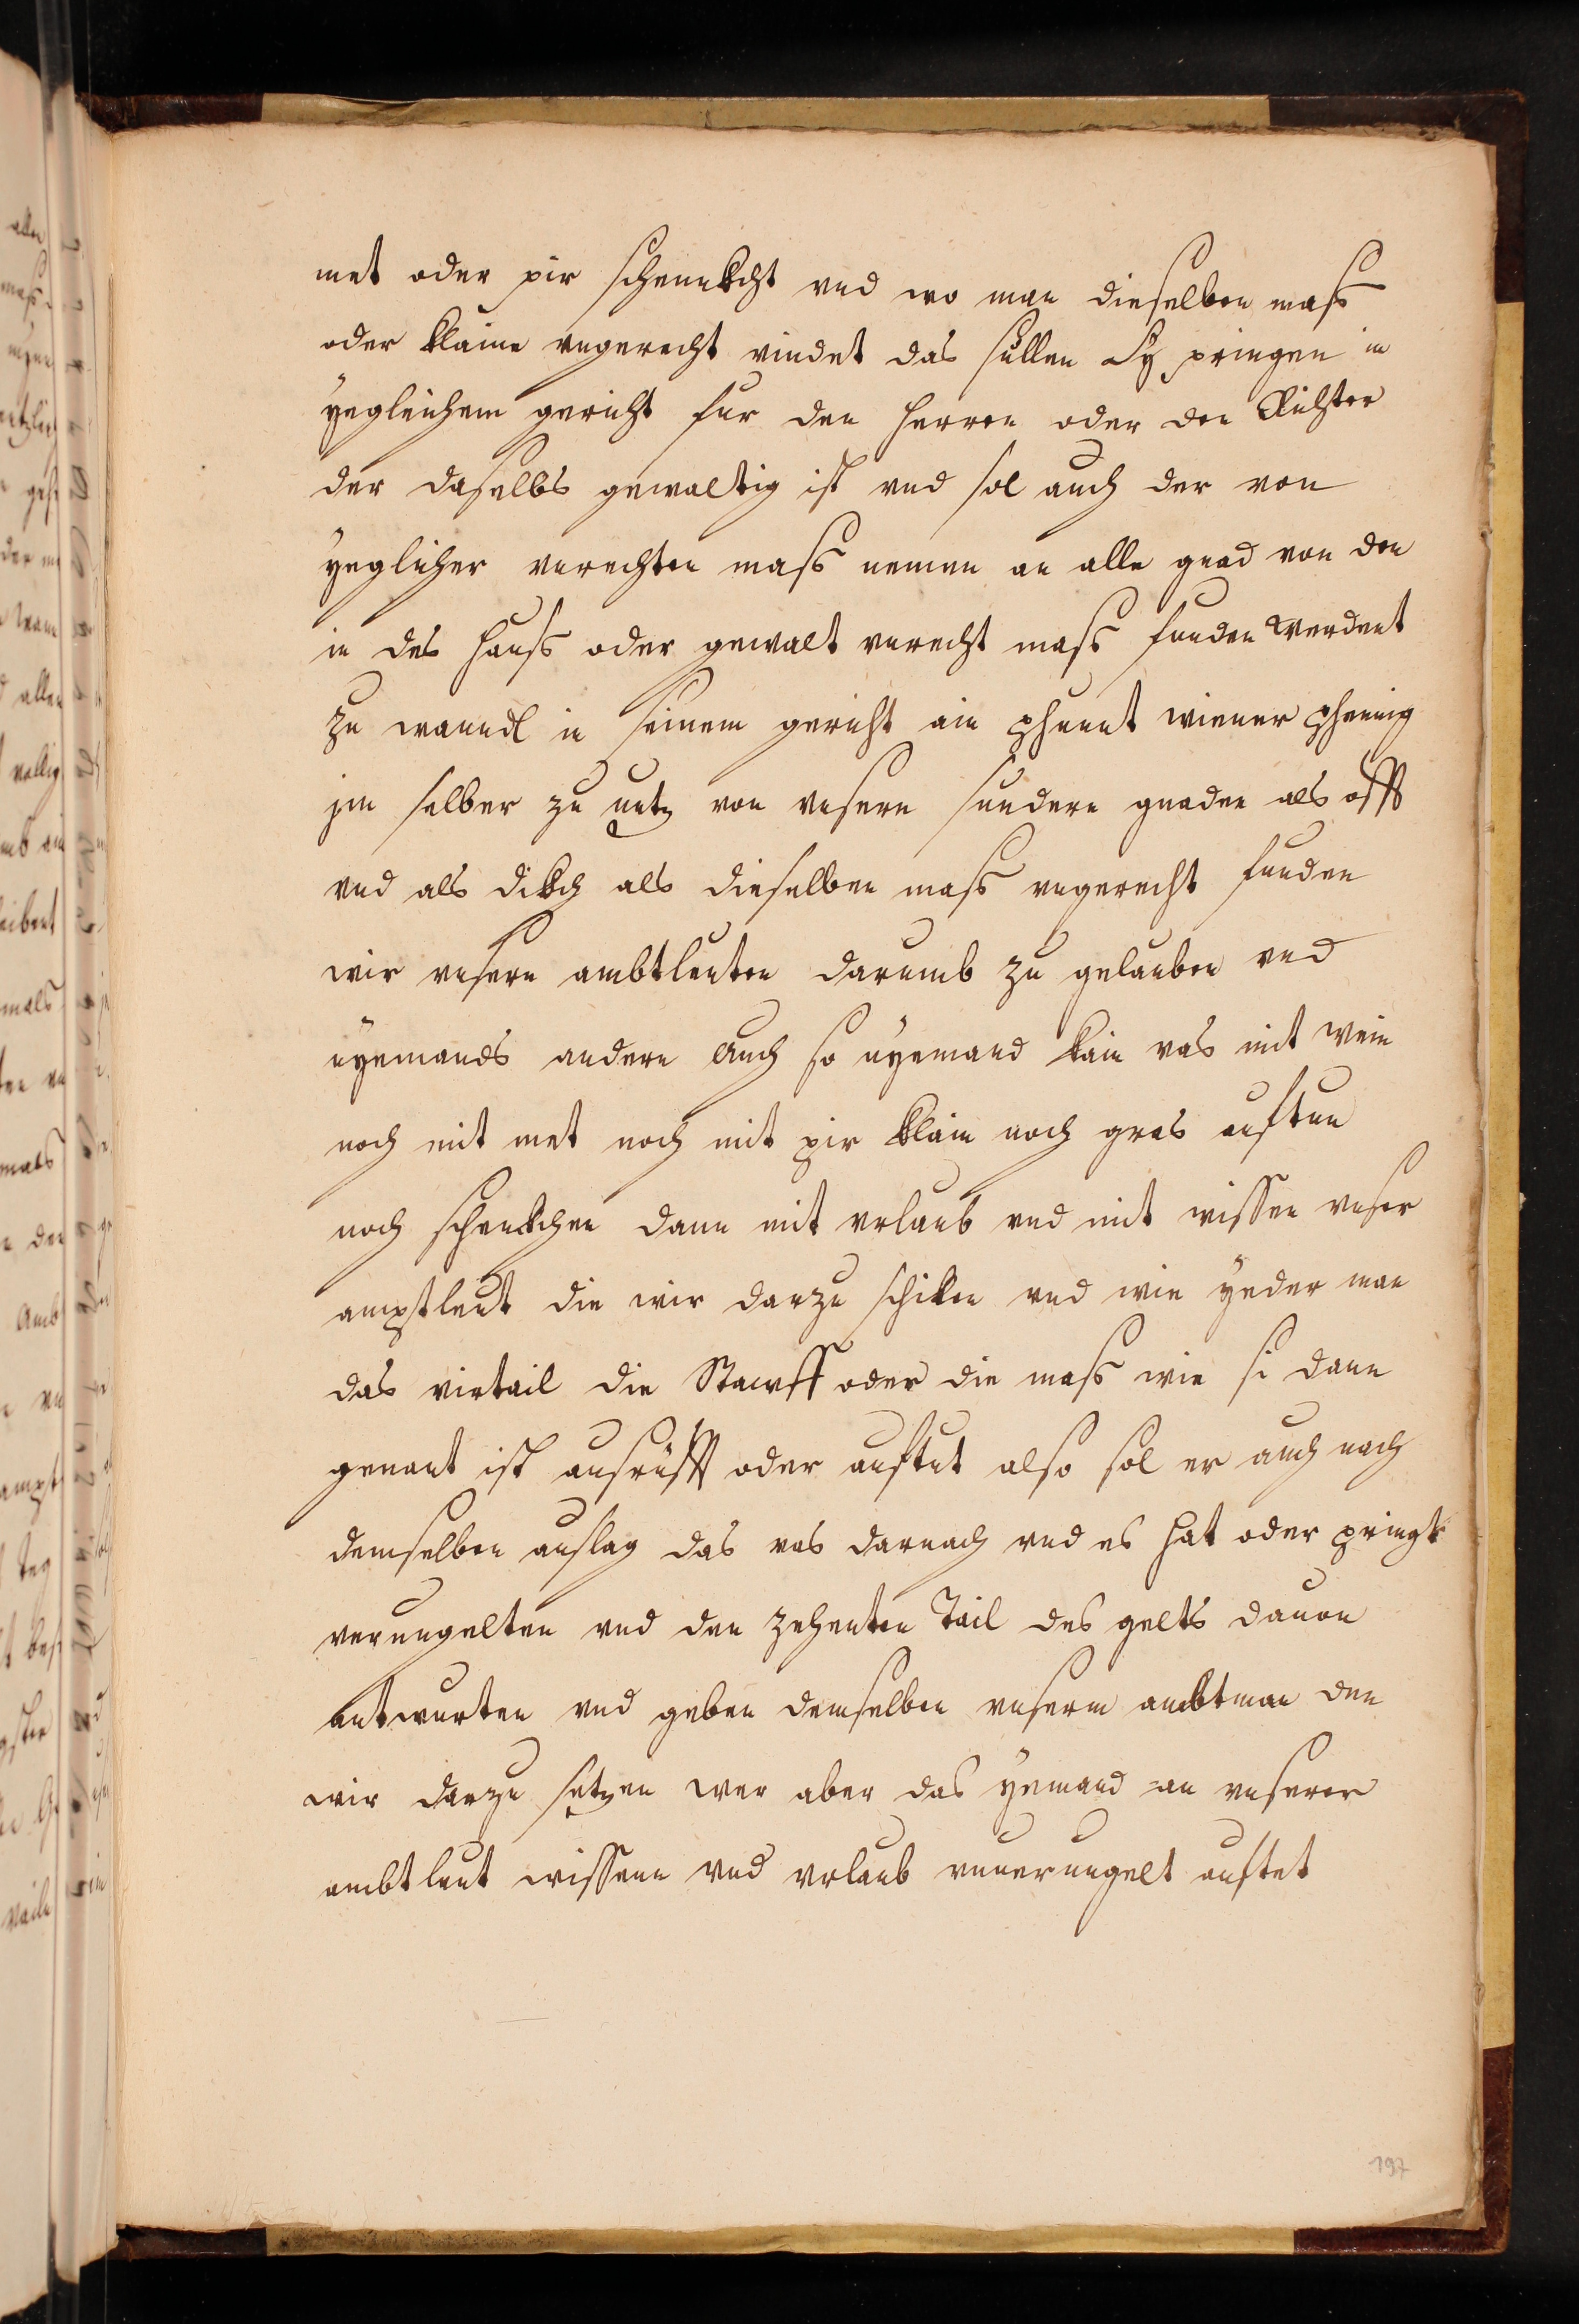 met oder pir schennkcht vnd wo man dieselben mass
oder klaine vngerecht vindet das sullen Sy pringen in
yegleichem gericht fur den herren oder den Richter
der daselbs gewaltig ist vnd sol auch der von
yeglicher vnrechten mass nemen an alle gnad von den
in des Hauss oder gewalt vnrecht mass funden werdent
zu wanndl in seinem gericht ain phunt wiener phennig
jm selber zu nutz von vnsern sundern gnaden als offt
vnd als dikch als dieselben mass vngerecht funden
wir vnsern ambtleuten darumb zu gelauben vnd
nyemands andern Auch so nyemand kain vas mit wein
noch mit met noch mit pir klain noch gros auftun
noch schenkchen dann mit vrlaub vnd mit wissen vnser
amptleut die wir darzu schiken vnd wie yeder man
das virtail die Stauff oder die mass wie si dann
genant ist ausrüfft oder auftut also sol er auch nach
demselben auslag das vas darnach vnd es hat oder pringt
verungelten vnd den zehenten Tail des gelts dauon
antwurten vnd geben demselben vnserm ambtman den
wir darzu setzen wer aber das yemand an vnserer
ambtleut wissenn vnd vrlaub vnuerungelt auftet
197